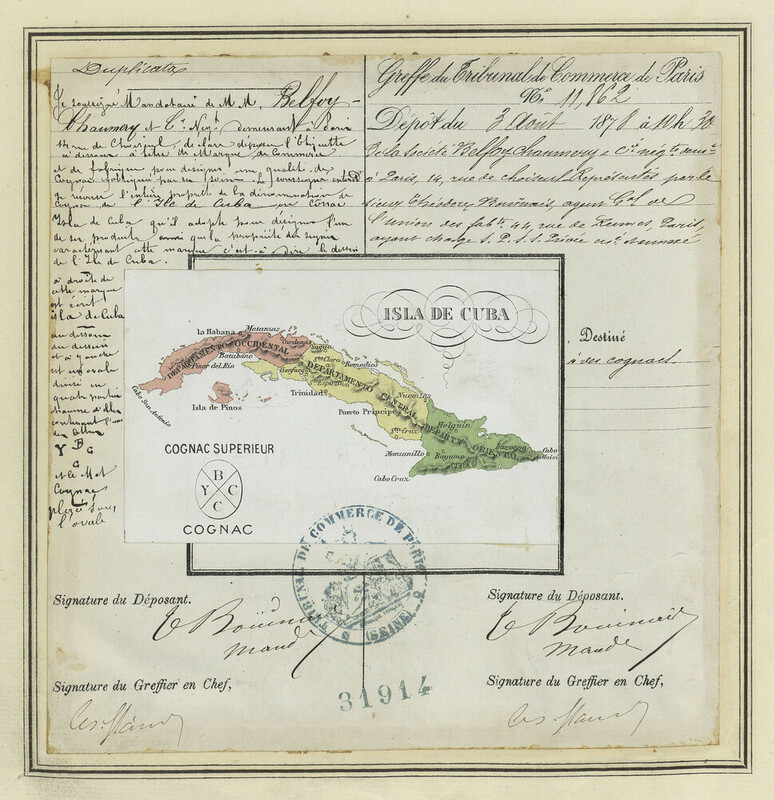 Duplicata
Je soussigné Mandataire de M.M. Belfoy-
Chaumery et Cie Négts demeurant à Paris
14 rue de Choiseul, déclare déposer l'Etiquette
à titre de Marque de Commerce
et de fabrique pour désigner une qualité de
Cognac
la dénomination de
Cognac de l'Ile de Cuba ou Cognac
Isla de Cuba qu'il adopte pour désigner l'un
de ses produits ainsi que la propriété des signes
caractérisant cette marque c'est à dire le dessin
de l'Ile de Cuba.
à droite de
cette marque
est écrit
isla de Cuba
au dessous
du dessin
et à gauche
est un ovale
divisé en
quatre parties
contenant
les lettres
Y B C
C
et le Mot
Cognac
placé sous
l'ovale
Greffe du Tribunal de Commerce de Paris
No. 11,862
Dépôt du 3 Août 1878 à 10h 30
De la société Belfoy Chaumery & Cie négts demt
à Paris, 14, rue de Choiseul Représentés par le
sieur Théodore Bouïnais, agent Gal de
l'union des fabts 44, rue de Rennes, Paris,
ayant charge S. P. S. S. Privée
Destiné
à des cognacs
ISLA DE CUBA
la Habana
Matanzas
Cardenas
DEPARTAMENTO OCCIDENTAL
Batabano
Pinar del Rio
Sagua
Sta Clara
Remedios
Cienfuegos
Sto Espiritu
Trinidad
DEPARTAMENTO CENTRAL
Nuevitas
Puerto Principe
Sta Cruz
Holguin
DEPARTO ORIENTAL
Manzanillo
Bayamo
Cuba
Cabo Maisi
Cabo Cruz
Isla de Pinos
Cabo San Antonio
COGNAC SUPERIEUR
B
Y C
C
COGNAC
TRIBUNAL DE COMMERCE DE PARIS
(SEINE)
Signature du Déposant.
Signature du Déposant.
Signature du Greffier en Chef,
Signature du Greffier en Chef,
31914